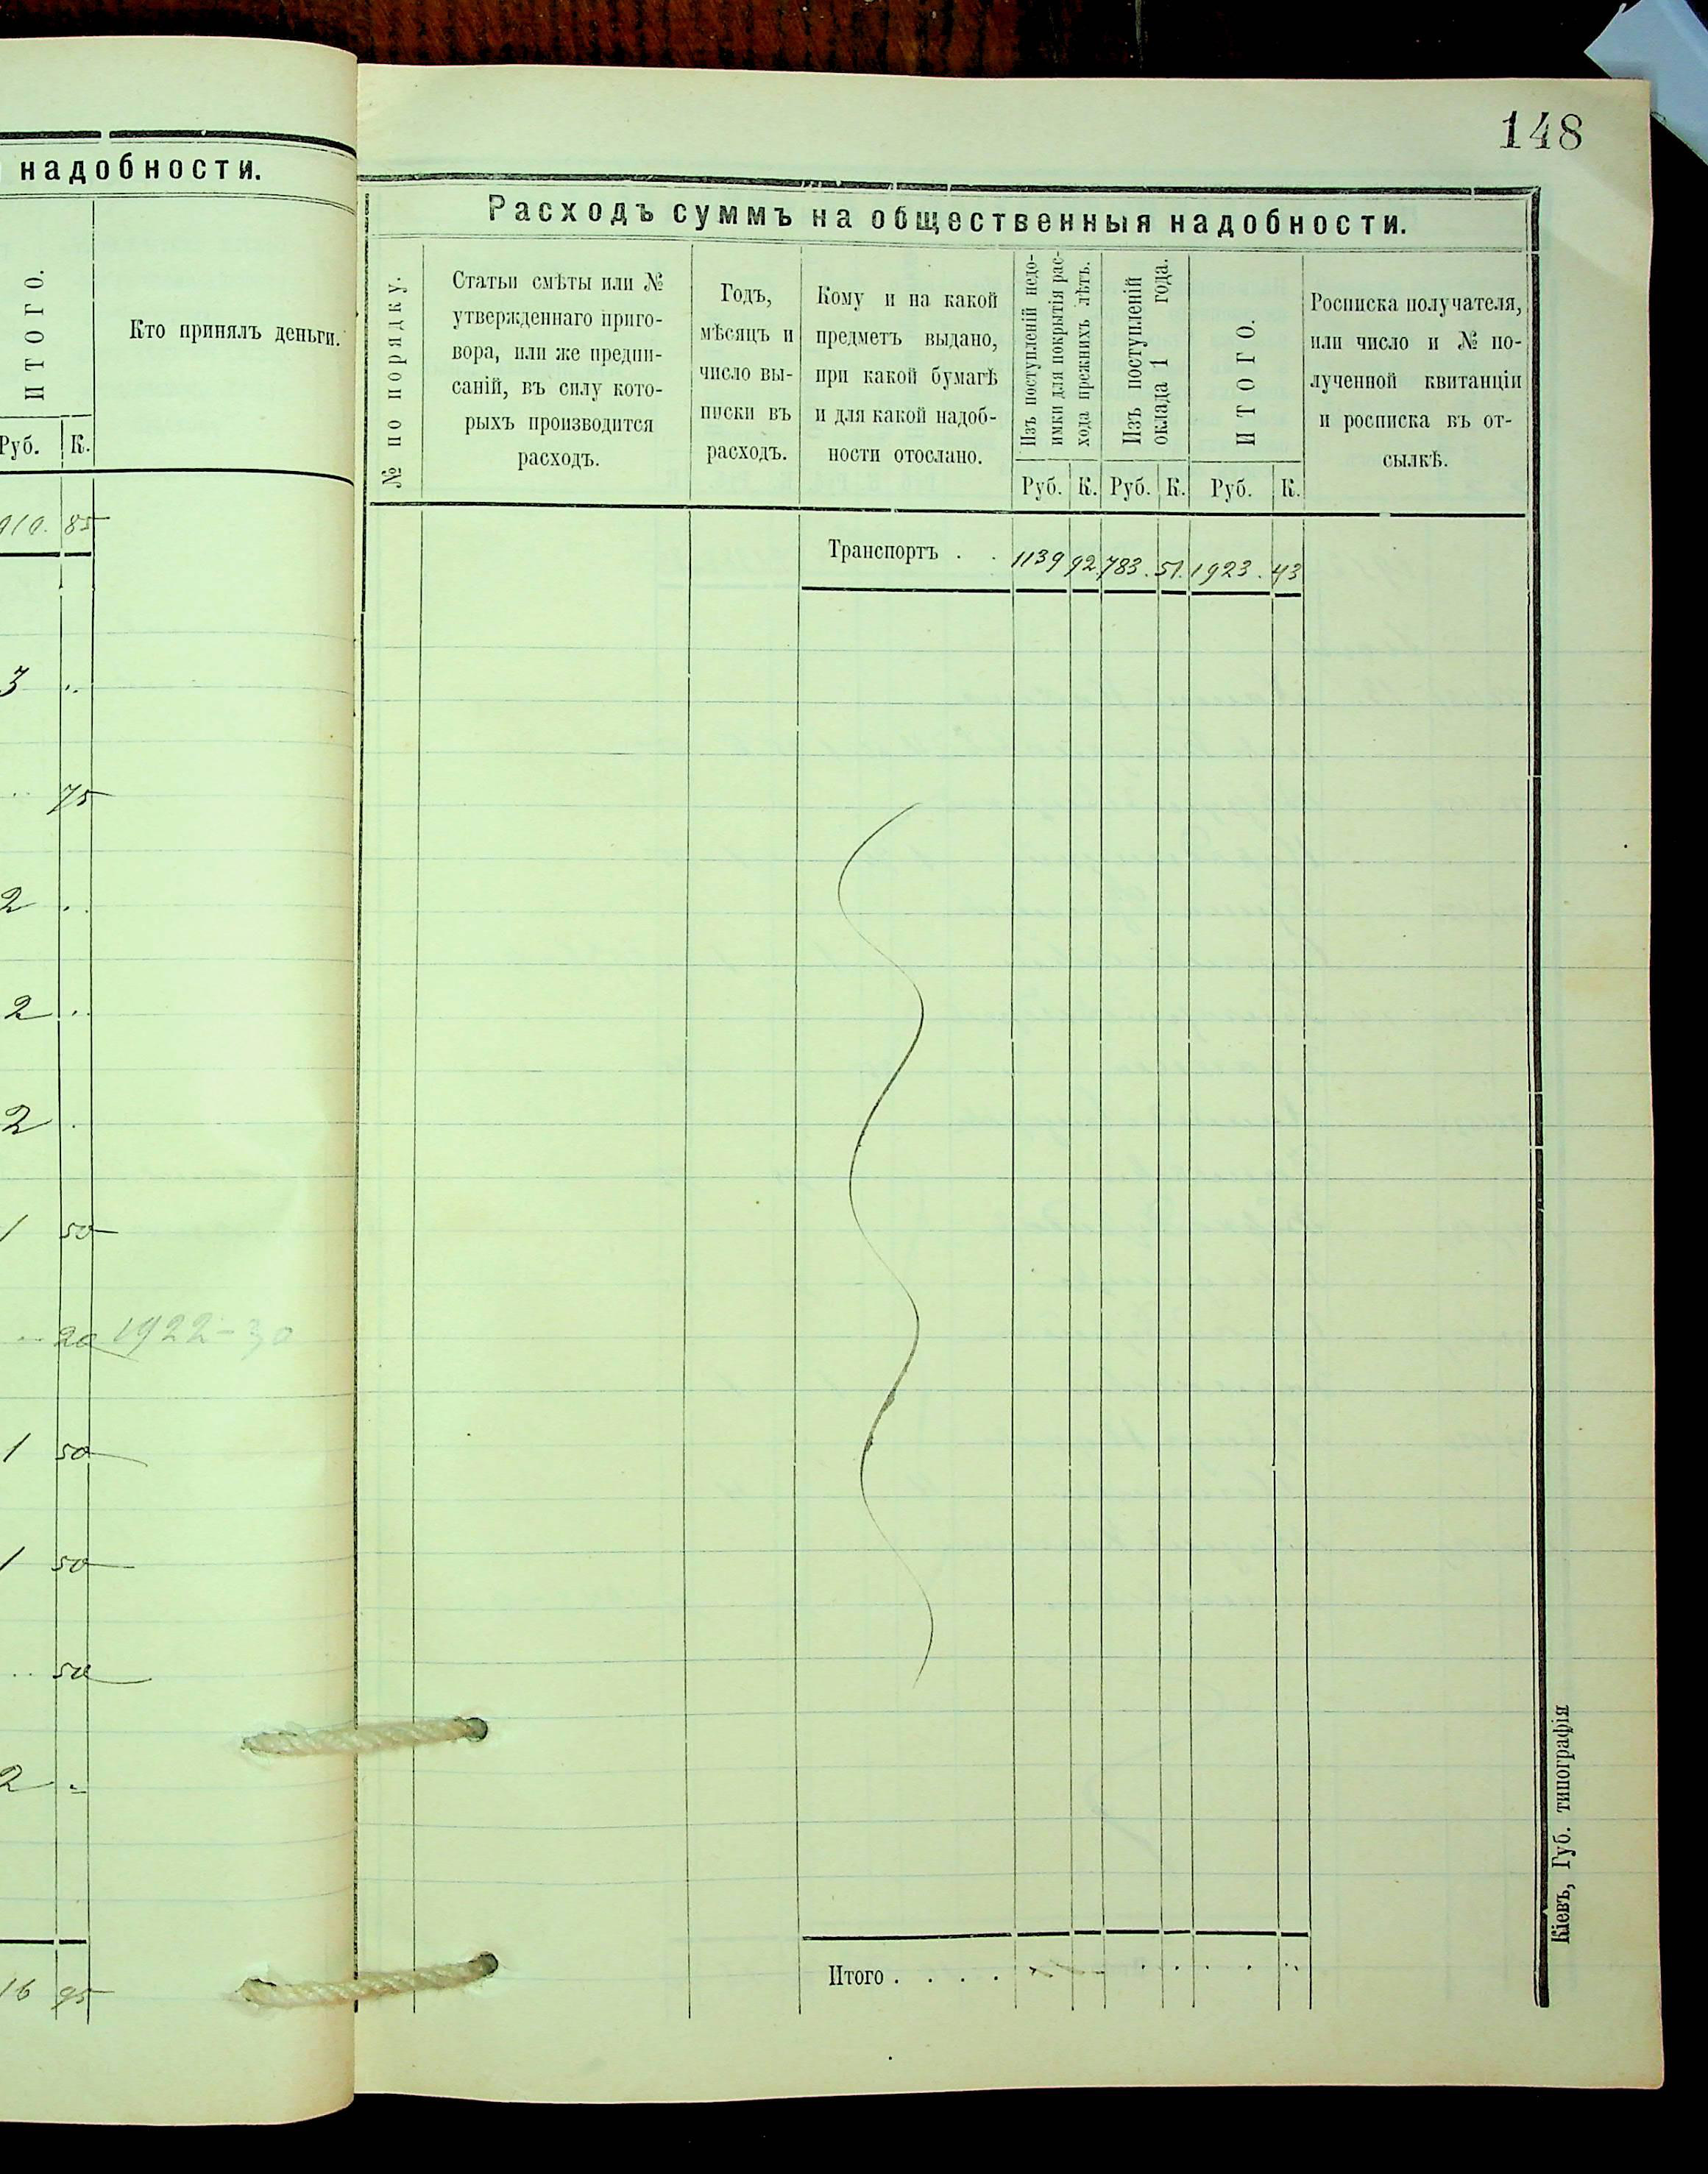 148
надобности.
ИТОГО.
Кто принялъ деньги.
Руб. К.
85
3
75
2
2
2
1 50
20 1922-30
1 50
1 50
50
2
16 95
Расходъ суммъ на общественныя надобности.
№ по порядку.
Статьи смѣты или №
утвержденнаго приго-
вора, или же предпи-
саній, въ силу кото-
рыхъ производится
расходъ.
Годъ,
мѣсяцъ и
число вы-
писки въ
расходъ.
Кому и на какой
предметъ выдано,
при какой бумагѣ
и для какой надоб-
ности отослано.
Изъ поступленій недо-
имки для покрытія рас-
хода прежнихъ лѣтъ.
Изъ поступленій
оклада 1 года.
ИТОГО.
Росписка получателя,
или число и № по-
лученной квитанціи
и росписка въ от-
сылкѣ.
Руб. К. Руб. К. Руб. К.
Транспортъ . . 1139 92 783. 51. 1923. 43
Итого . . . .
Кіевъ, Губ. типографія